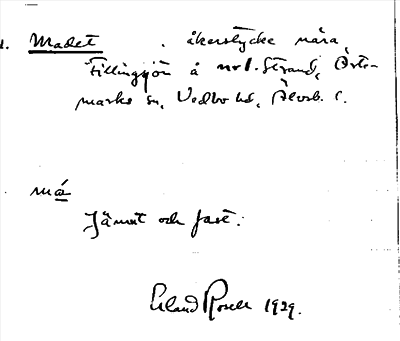 Madet . åkerstycke nära
Fillingsjön å nr 1. Strand, Ärte-
marks sn, Vedbo hd, Älvsb. l.
må
Jämnt och fast.
Erland Rosell 1929.